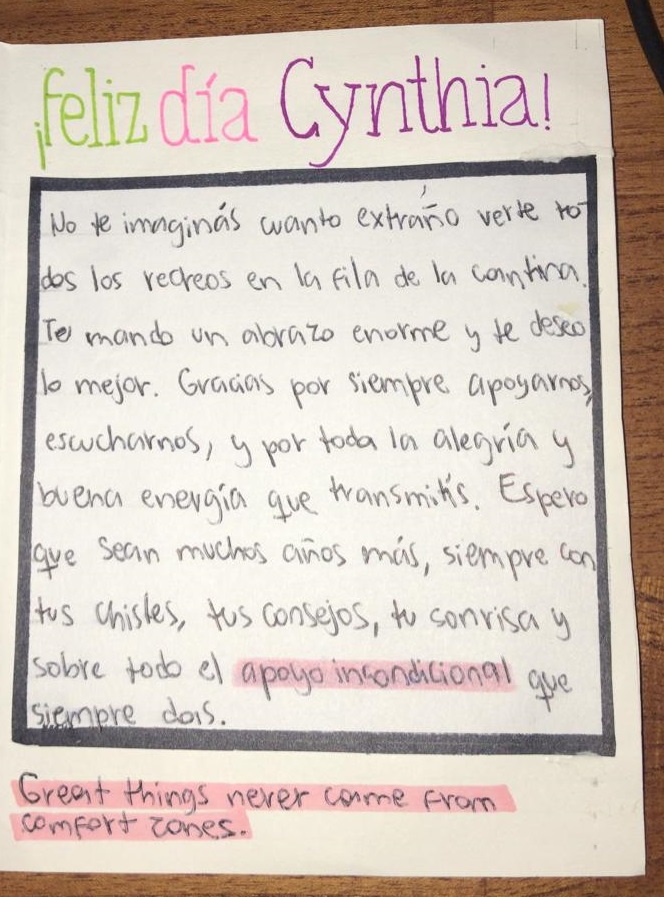 ¡feliz día Cynthia!
No te imaginás cuanto extraño verte to-
dos los recreos en la fila de la cantina.
Te mando un abrazo enorme y te deseo
lo mejor. Gracias por siempre apoyarnos,
escucharnos, y por toda la alegría y
buena energía que transmitís. Espero
que sean muchos años más, siempre con
tus chistes, tus consejos, tu sonrisa y
sobre todo el apoyo incondicional que
siempre das.
Great things never came from
comfort zones.